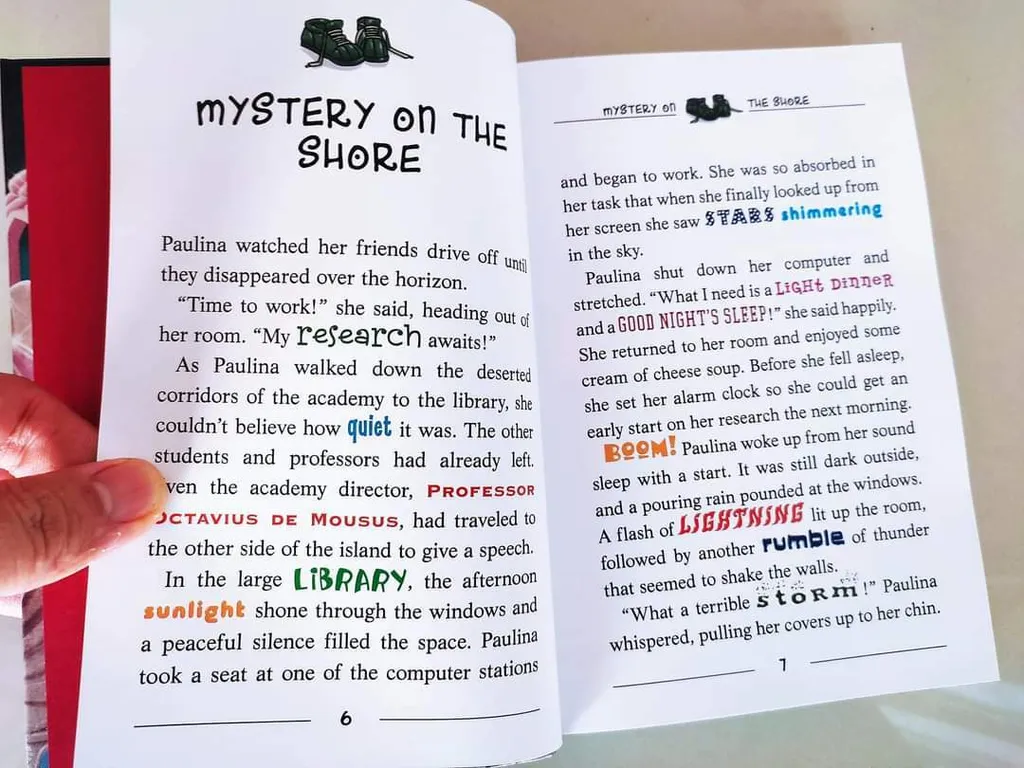 MYSTERY ON THE
SHORE
Paulina watched her friends drive off until
they disappeared over the horizon.
“Time to work!” she said, heading out of
her room. “My research awaits!”
As Paulina walked down the deserted
corridors of the academy to the library, she
couldn’t believe how quiet it was. The other
students and professors had already left.
ven the academy director, PROFESSOR
OCTAVIUS DE MOUSUS, had traveled to
the other side of the island to give a speech.
In the large LIBRARY, the afternoon
sunlight shone through the windows and
a peaceful silence filled the space. Paulina
took a seat at one of the computer stations
6
MYSTERY ON THE SHORE
and began to work. She was so absorbed in
her task that when she finally looked up from
her screen she saw STARS shimmering
in the sky.
Paulina shut down her computer and
stretched. “What I need is a LIGHT DINNER
and a GOOD NIGHT’S SLEEP!” she said happily.
She returned to her room and enjoyed some
cream of cheese soup. Before she fell asleep,
she set her alarm clock so she could get an
early start on her research the next morning.
BOOM! Paulina woke up from her sound
sleep with a start. It was still dark outside,
and a pouring rain pounded at the windows.
A flash of LIGHTNING lit up the room,
followed by another rumble of thunder
that seemed to shake the walls.
“What a terrible STORM!” Paulina
whispered, pulling her covers up to her chin.
7